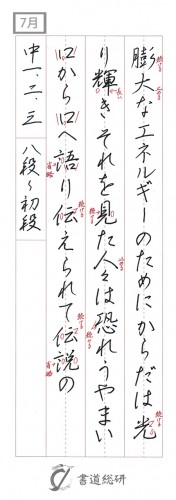 7月
膨大なエネルギーのためにからだは光
り輝きそれを見た人々は恐れうやまい
口から口へ語り伝えられて伝説の
中一、二、三 八段〜初段
書道総研